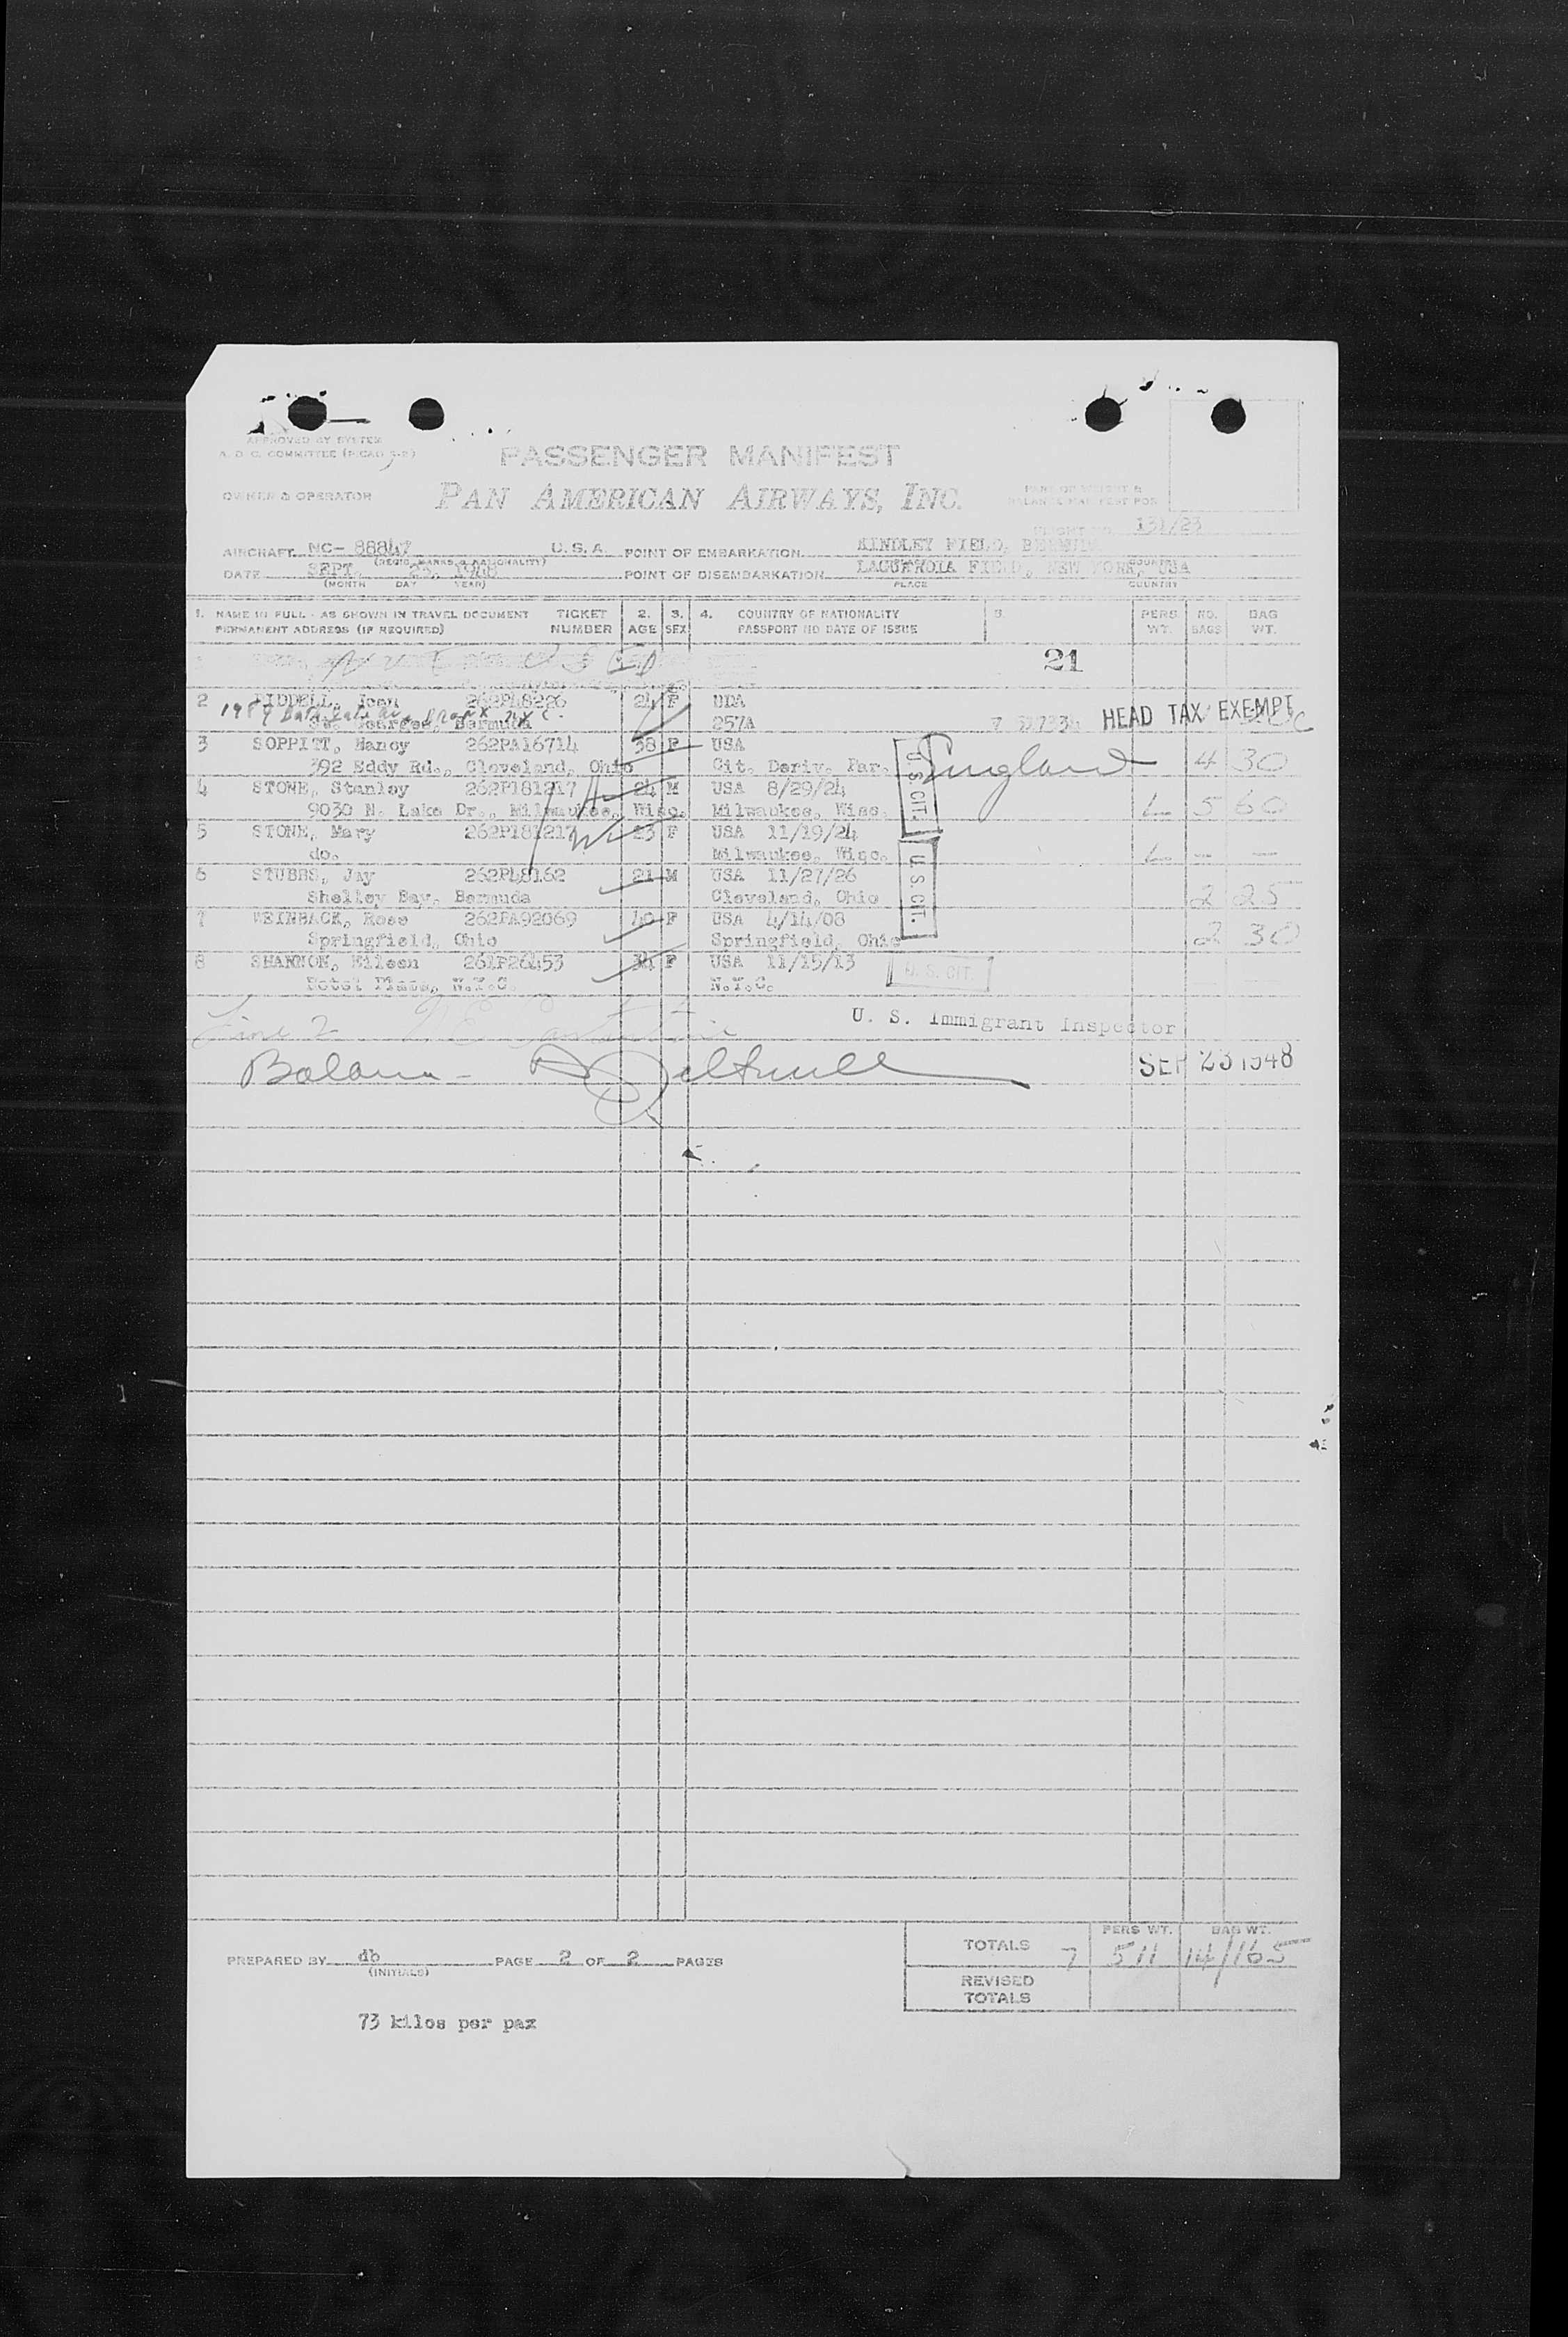 APPROVED BY SYSTEM
A. D. C. COMMITTEE
PASSENGER MANIFEST
OWNER & OPERATOR PAN AMERICAN AIRWAYS, INC.
131/23
AIRCRAFT NC- 88847 U. S. A. POINT OF EMBARKATION KINDLEY FIELD, BERMUDA
(REGIS. MARKS & NATIONALITY) COUNTRY
DATE SEPT. 23, 1948 POINT OF DISEMBARKATION LAGUARDIA FIELD, NEW YORK, USA
(MONTH DAY YEAR) PLACE COUNTRY
1. NAME IN FULL - AS SHOWN IN TRAVEL DOCUMENT TICKET 2. 3. 4. COUNTRY OF NATIONALITY 5. PERS NO. BAG
PERMANENT ADDRESS (IF REQUIRED) NUMBER AGE SEX PASSPORT NO DATE OF ISSUE WT. BAGS WT.
1 21
2 RIDDELL, Jean 262P48226 24 F UDA
St. Georges, Bermuda 257A HEAD TAX EXEMPT
3 SOPPITT, Nancy 262PA16714 38 F USA England
392 Eddy Rd., Cleveland, Ohio Cit. Deriv. Par. 4 30
4 STONE, Stanley 262P181217 24 M USA 8/29/24 U. S. CIT.
9030 N. Lake Dr., Milwaukee, Wisc. Milwaukee, Wisc. 5 60
5 STONE, Mary 262P181217 23 F USA 11/19/24
do. Milwaukee, Wisc. — —
6 STUBBS, Jay 262P48162 21 M USA 11/27/26 U. S. CIT.
Shelley Bay, Bermuda Cleveland, Ohio 2 25
7 WEINBACK, Rose 262PA92069 40 F USA 4/14/08
Springfield, Ohio Springfield, Ohio 2 30
8 SHANNON, Eileen 261P26453 34 F USA 11/15/13 U. S. CIT.
Hotel Plaza, N.Y.C. N.Y.C.
Line 2
U. S. Immigrant Inspector
SEP 23 1948
PERS WT. BAG WT.
TOTALS 7 511 14/165
PREPARED BY db PAGE 2 OF 2 PAGES
(INITIALS)
REVISED
TOTALS
73 kilos per pax